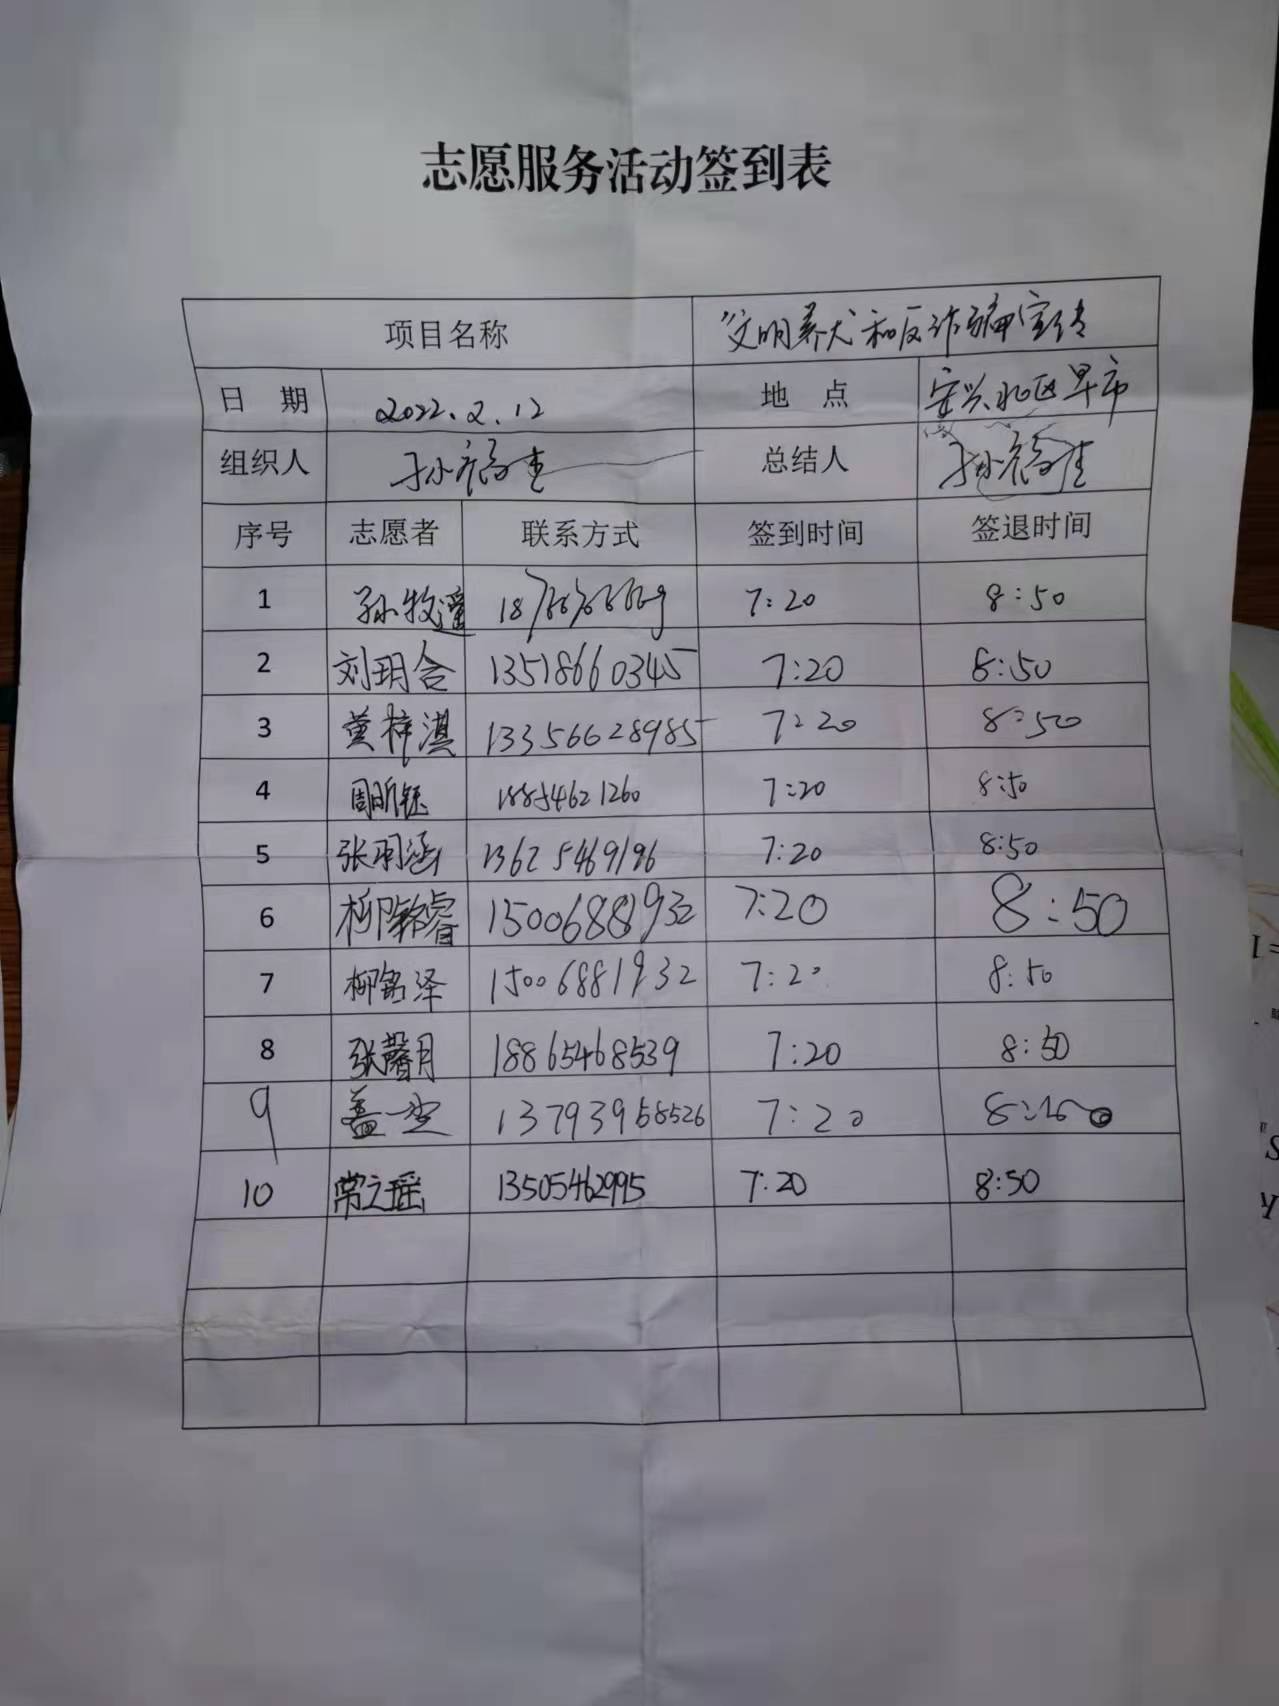 志愿服务活动签到表
项目名称 "文明养犬"和反诈骗宣传
日 期 2022.2.12 地 点 安兴北区早市
组织人 孙 总结人 孙
序号 志愿者 联系方式 签到时间 签退时间
1 孙牧遥 7:20 8:50
2 刘玥含 13518660345 7:20 8:50
3 黄梓淇 13356628985 7:20 8:50
4 周昕钰 18854621260 7:20 8:50
5 张羽涵 13625469196 7:20 8:50
6 柳铭睿 15006881932 7:20 8:50
7 柳铭泽 15006881932 7:20 8:50
8 张馨月 18865468539 7:20 8:50
9 盖一 13793958526 7:20 8:
10 常之瑶 13505462995 7:20 8:50